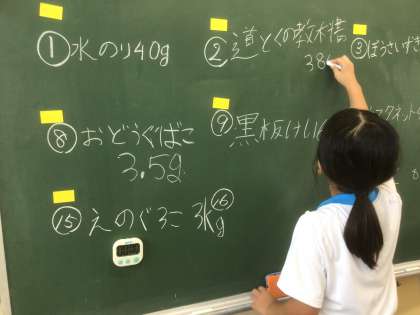 ①水のり40g
②道とくの教木
38
③ぼうさいずき
⑧おどうぐばこ
3.5g
⑨黒板けい
ックネット
8
⑮えのぐ3こ 3kg
⑯